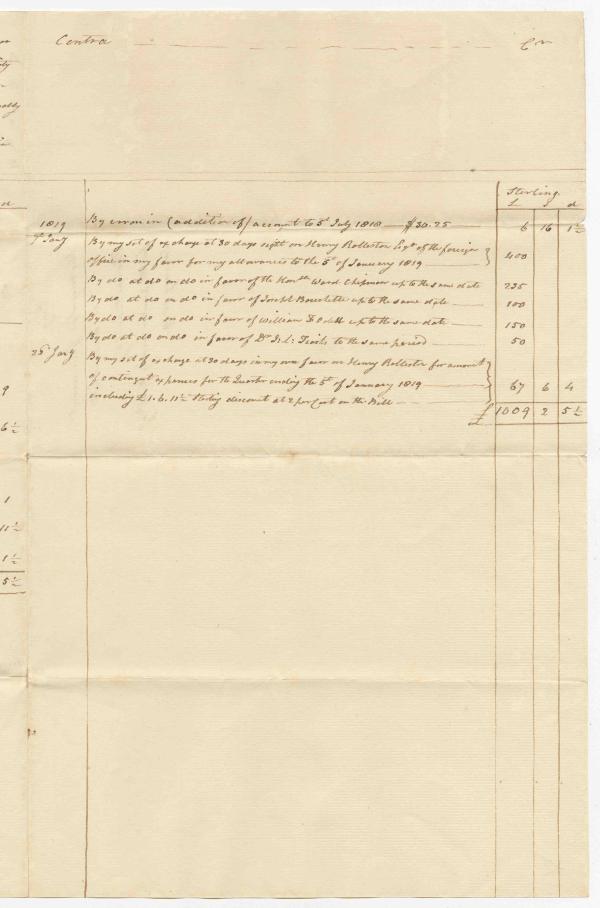 Contra Cr
Sterling
£ S d
1819
By error in (addition of) account to 5th July 1818 — $30.25 — 6 16 1½
9th Jany
By my set of exchange at 30 days sight on Henry Rolleston Esqr of the foreign
office in my favor for my allowances to the 5th of January 1819 — 400
By do at do on do in favor of the Honble Ward Chipman up to the same date 235
By do at do on do in favor of Joseph Bouchette up to the same date — 100
By do at do on do in favor of William F Odell up to the same date — 150
By do at do on do in favor of Dr J. L: Tiarks to the same period — 50
25 Jany
By my set of exchange at 30 days in my own favor on Henry Rolleston for amount
of contingent expences for the Quarter ending the 5th of January 1819 — 67 6 4
including £1.6.11½ Sterling discount at 2 per Cent on the Bill —
£ 1009 2 5½
d
9
6½
1
11½
1½
5½